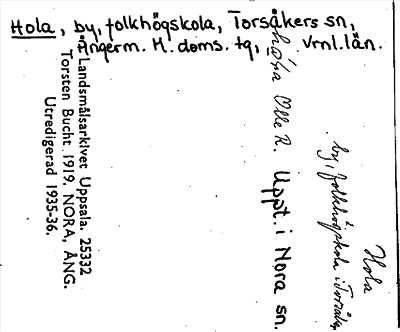 Hola, by, folkhögskola, Torsåkers sn,
Ångerm. M. doms. tg, Vrnl. län.
Landsmålsarkivet Uppsala. 25332
Torsten Bucht 1919. NORA, ÅNG.
Utredigerad 1935-36.
Olle R. Uppt. i Nora sn.
Hola
by, folkhögskola i Torsåker